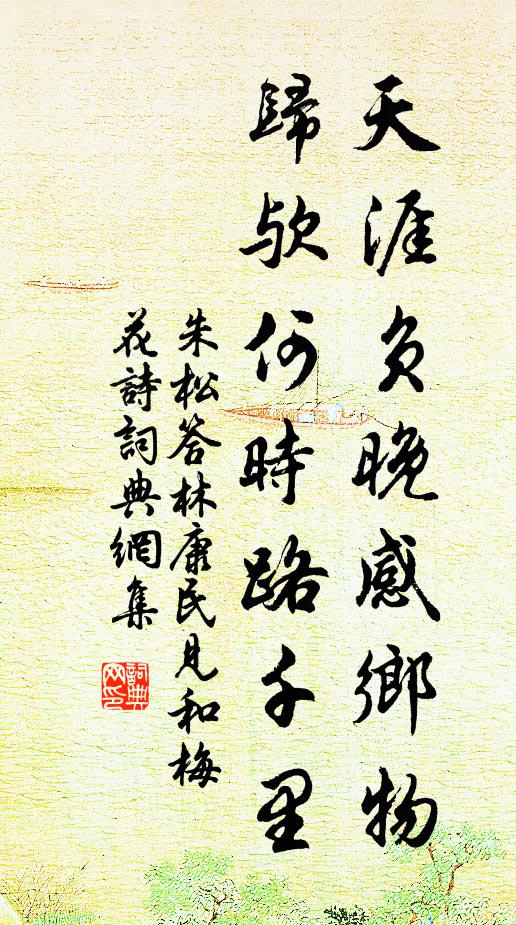 天涯負晚感鄉物
歸歟何時路千里
朱松答林康民見和梅
花詩詞典網集
詞典
网印